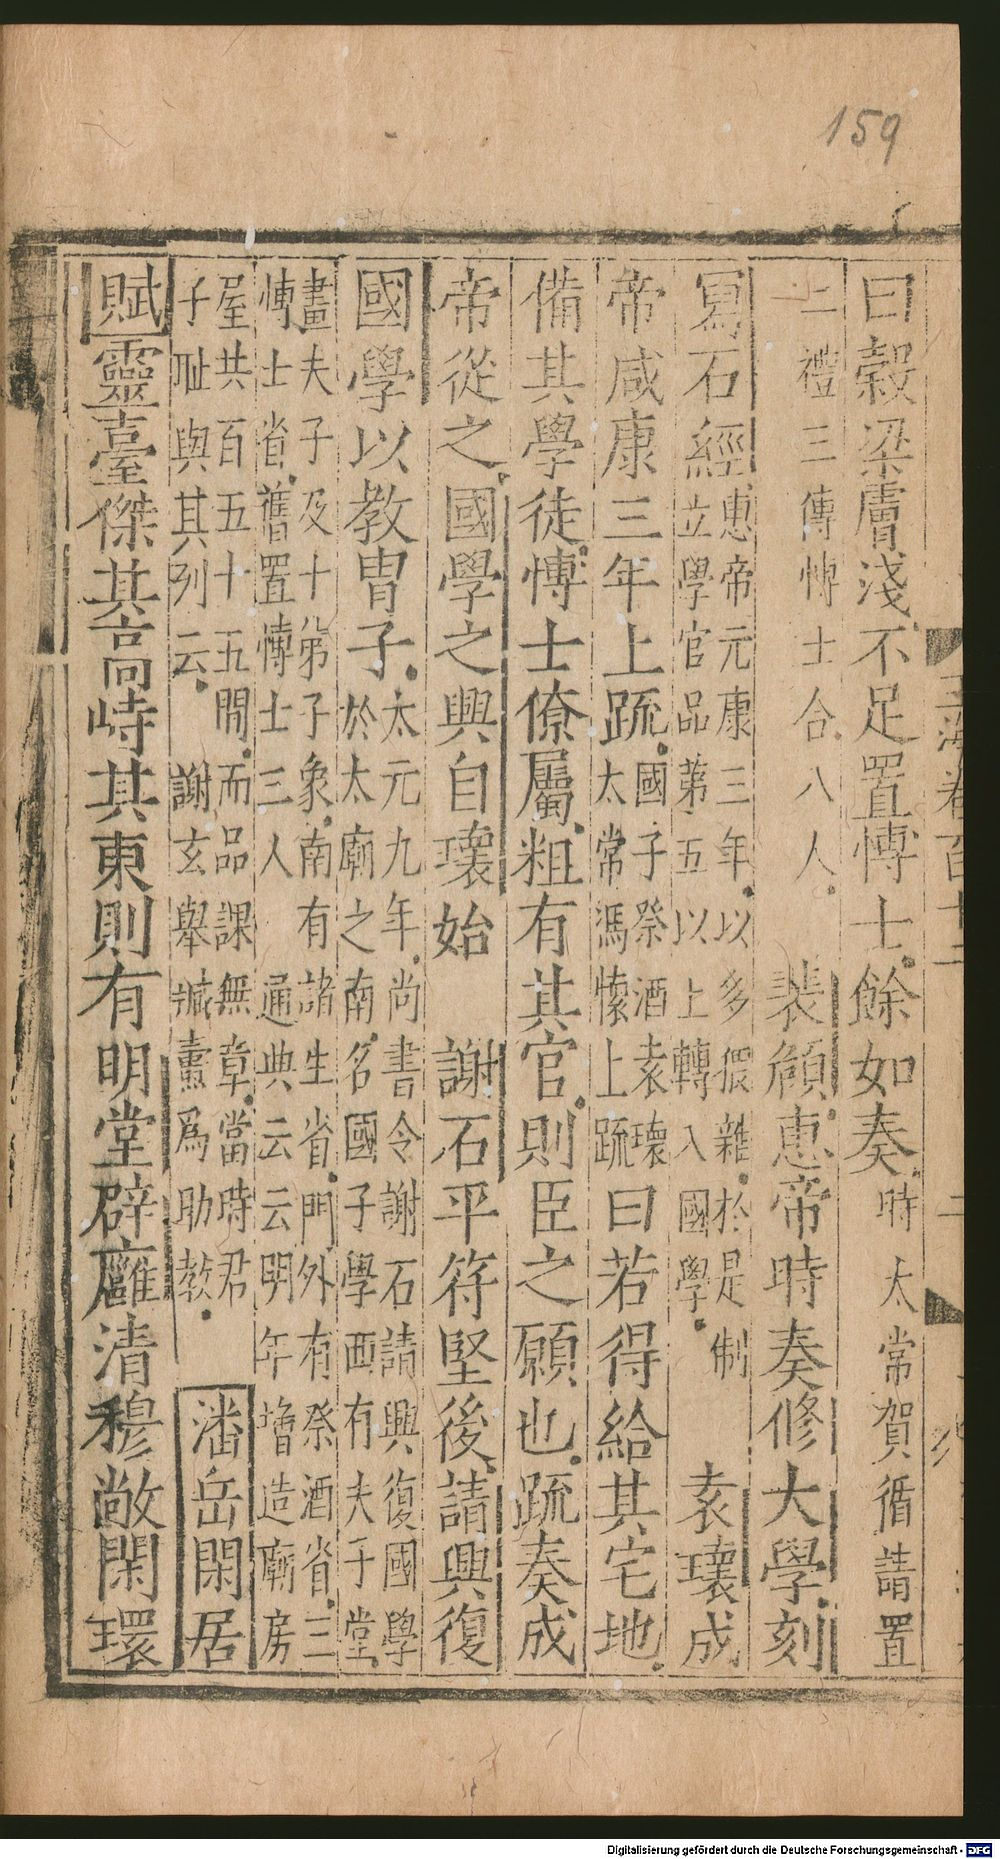 159
曰穀梁膚淺不足置博士餘如奏時太常賀循請置
二禮三傳博士合八人 裴頠惠帝時奏修大學刻
寫石經惠帝元康三年以多假雜於是制
立學官品第五以上轉入國學 袁瓌成
帝咸康三年上疏國子祭酒袁瓌
太常馮懷上疏曰若得給其宅地
備其學徒博士僚屬粗有其官則臣之願也疏奏成
帝從之國學之興自瓌始 謝石平符堅後請興復
國學以教冑子太元九年尚書令謝石請興復國學
於太廟之南名國子學西有夫子堂
畫夫子及十弟子象南有諸生省門外有祭酒省三
博士省舊置博士三人 通典云云明年增造廟房
屋共百五十五間而品課無章當時君
子恥與其列云 謝玄舉臧燾爲助教 潘岳閑居
賦靈臺傑其高峙其東則有明堂辟廱清穆敞閑環
玉海卷百十二
Digitalisierung gefördert durch die Deutsche Forschungsgemeinschaft - DFG